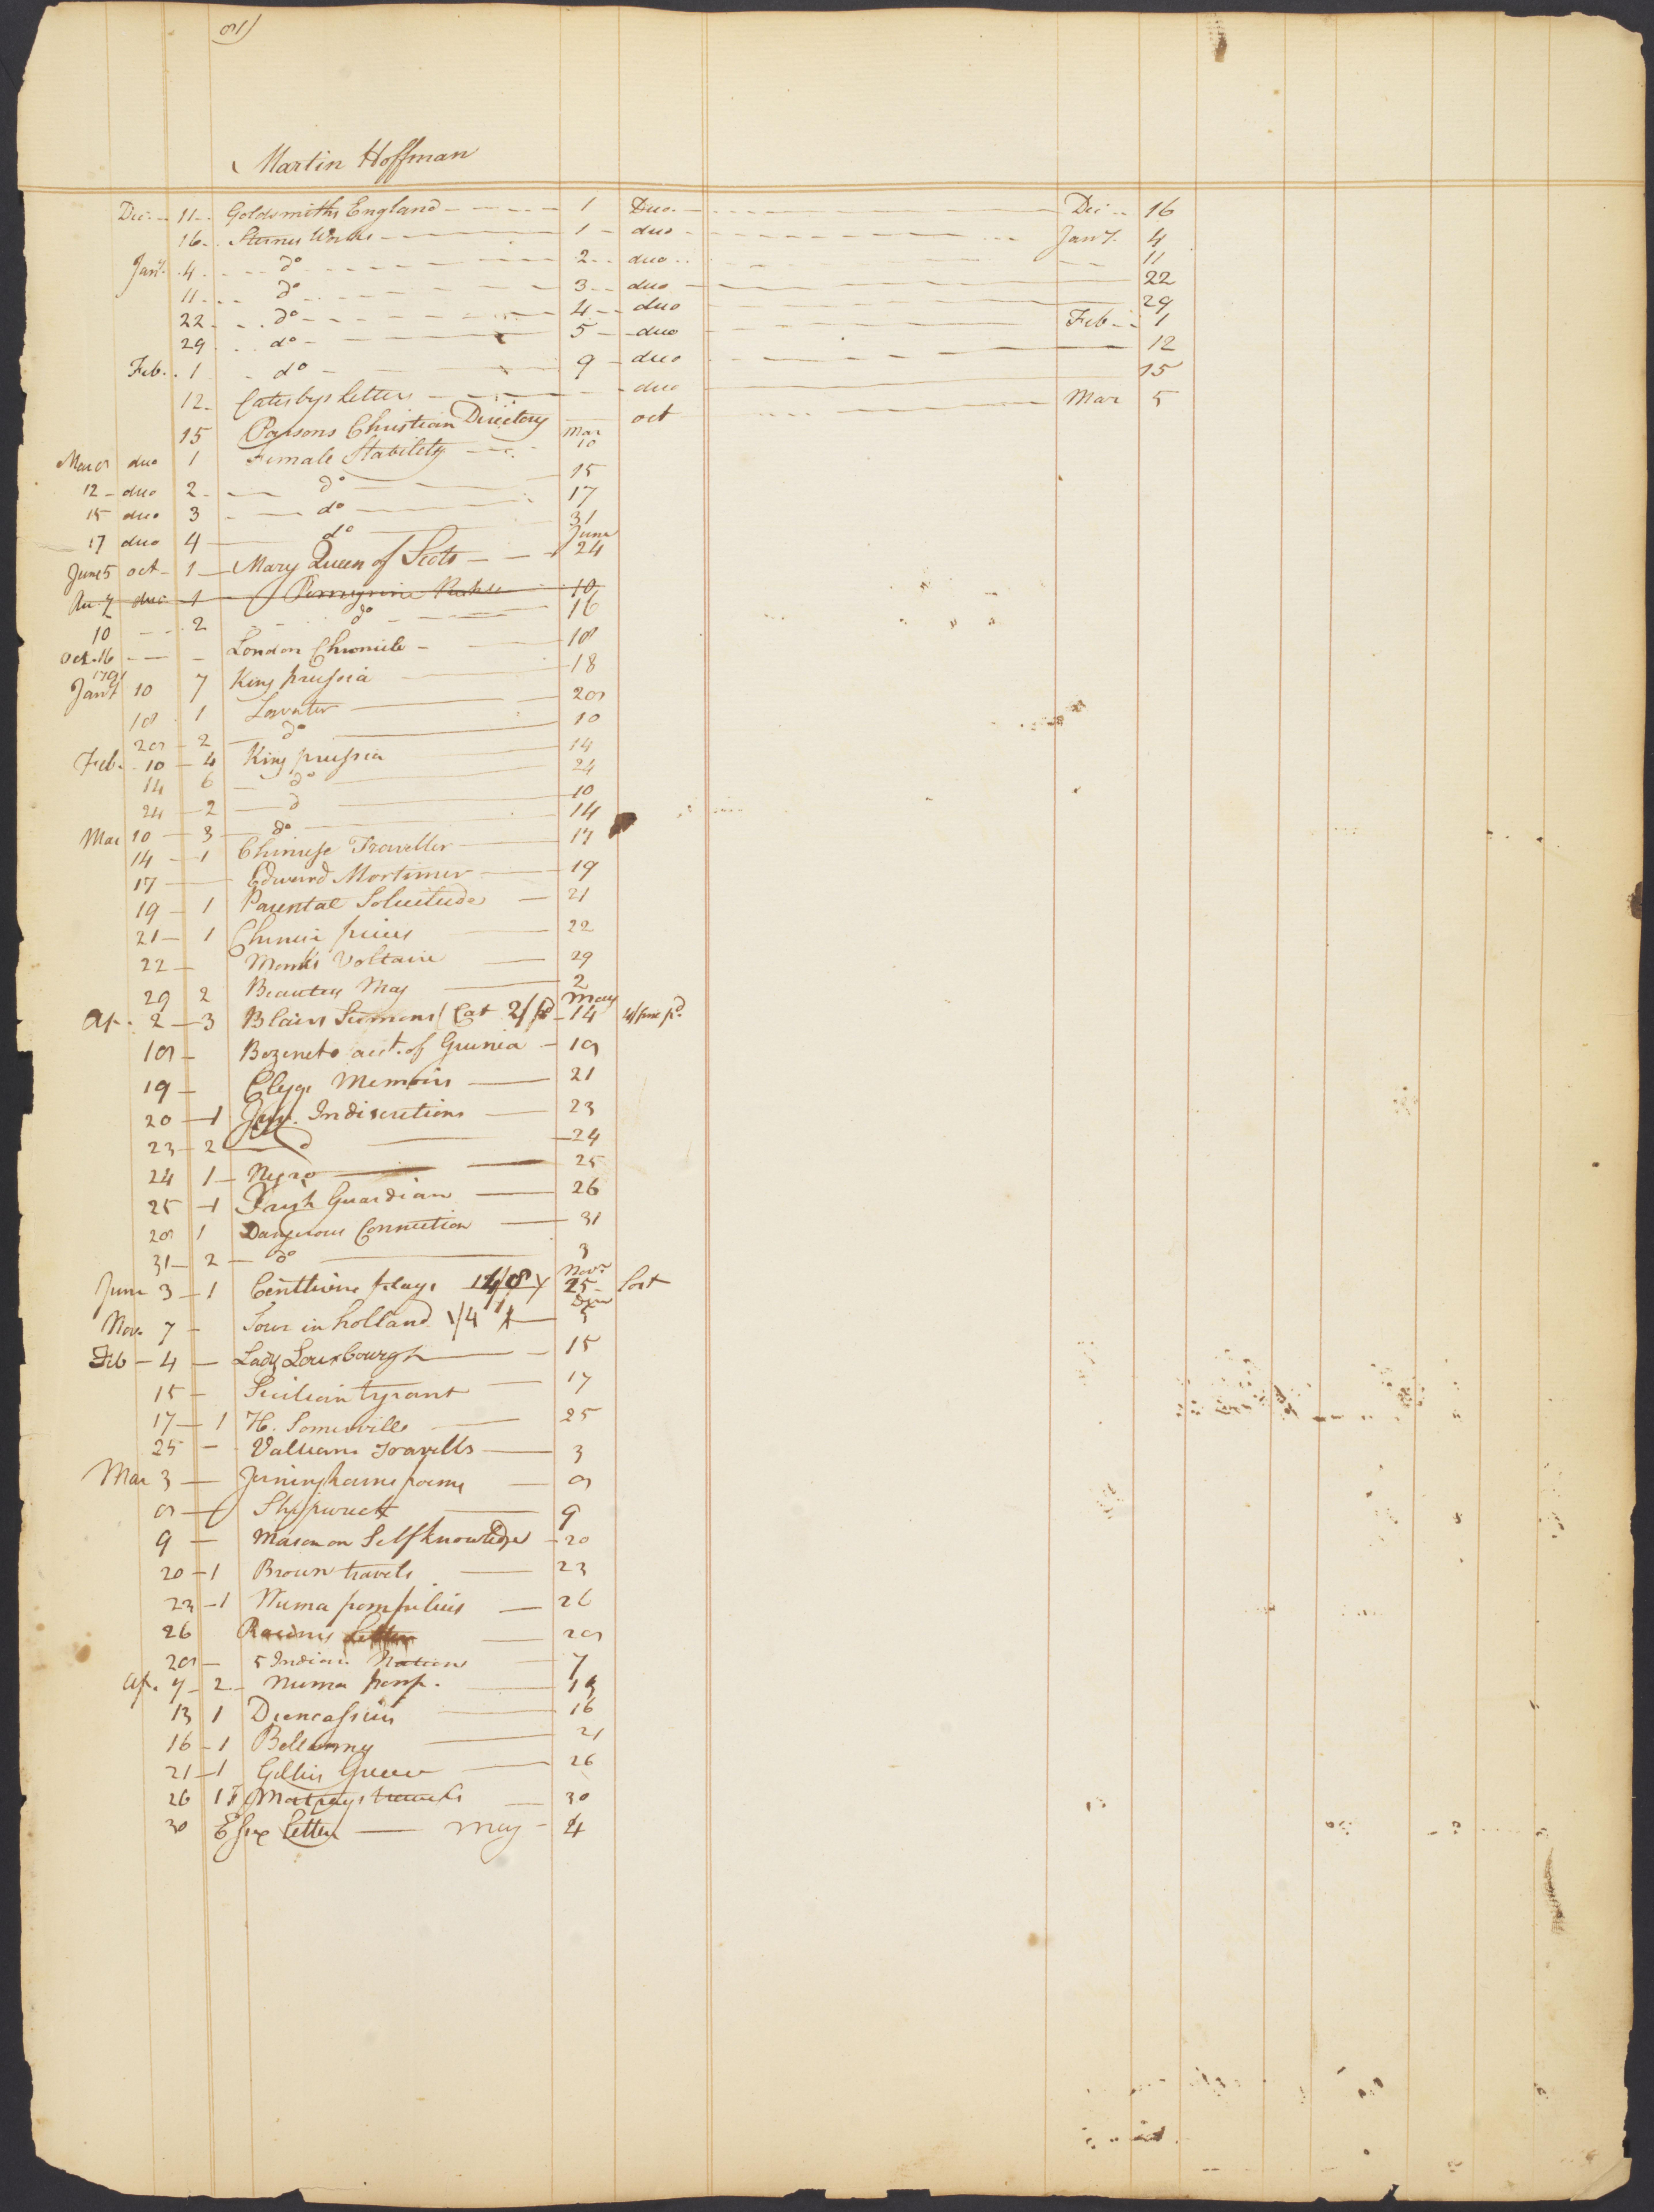 81
Martin Hoffman
Dec. 11 Goldsmiths England 1 Duo. Dec 16
16 Sternes Works 1 duo Jany. 4
Jany. 4 do 2 duo 11
11 do 3 duo 22
22 do 4 duo 29
29 do 5 duo Feb 1
Feb. 1 do 9 duo 12
12 Catesbys Letters duo 15
15 Parsons Christian Directory oct Mar 5
Mar 8 duo 1 Female Stability Mar 10
12 duo 2 do 15
15 duo 3 do 17
17 duo 4 do 31
June 5 oct 1 Mary Queen of Scots June 24
Au 7 duo 1 Perregrine 10
10 2 do 16
Oct. 16 London Chronicle 18
1791
Jany 10 7 King prussia 18
18 1 Lavater 28
28 2 do 10
Feb. 10 4 King prussia 14
14 6 do 24
24 2 d 10
Mar 10 3 do 14
14 1 Chinese Traveller 17
17 Edward Mortimer 19
19 1 Parental Solicitude 21
21 1 Chinese pieces 22
22 Voltaire 29
29 2 Beauties Mag 2
Ap. 2 3 Blairs Sermons Cat 2/ May 14
18 Bezenets act. of Guinea 19
19 Memoirs 21
20 1 Juv. Indiscretions 23
23 2 d 24
24 1 Negro 25
25 1 Irish Guardian 26
28 1 Dangerous Connection 31
31 2 do 3
June 3 1 Centlivre plays Novr 25 Lost
Nov. 7 Tour in holland 1/4 5
Feb 4 Lady Louxbourgh 15
15 Sicilian tyrant 17
17 1 H. Somerville 25
25 Vallians Travells 3
Mar 3 Jerninghams poems 8
8 Shipwreck 9
9 Mason on Self knowledge 20
20 1 Brown travels 23
23 1 Numa pompilius 26
26 Letters 28
28 5 Indian Nations 7
Ap. 7 2 Numa pomp. 13
13 1 16
16 1 Bellamy 21
21 1 26
26 1 30
30 Essex Letters May 4